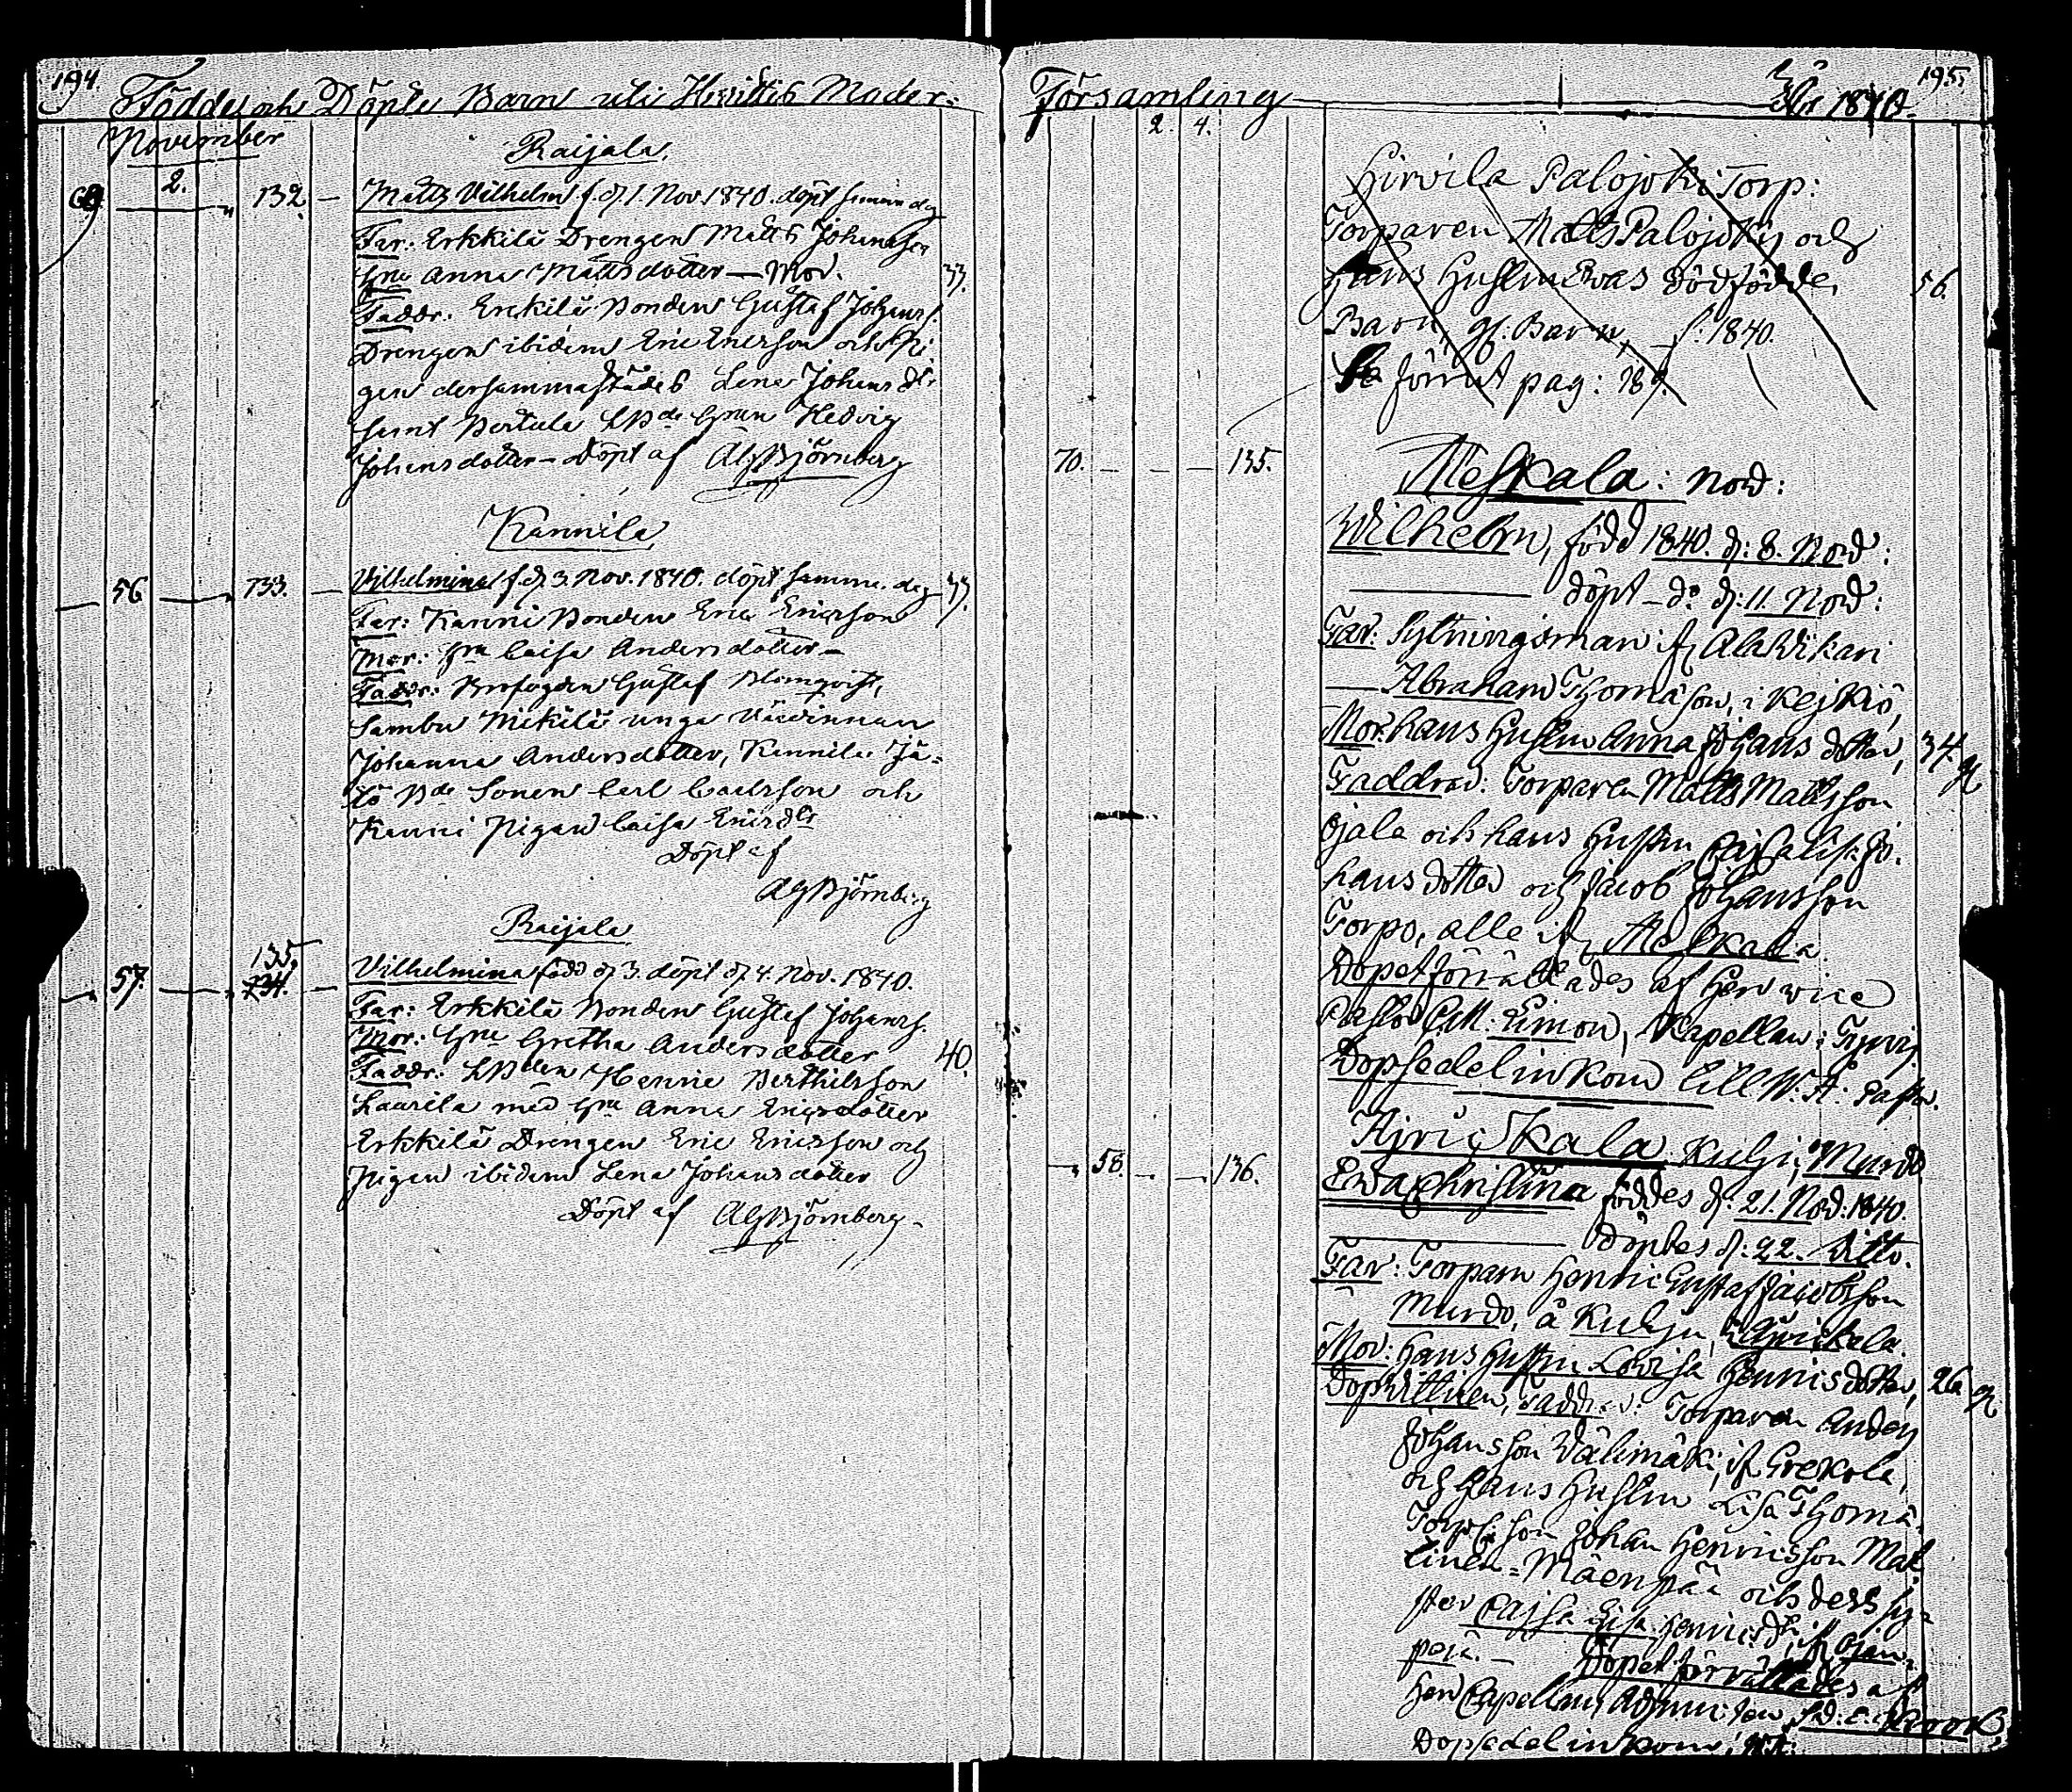 194.
Födde och Döpte Barn uti Hvittis Moder-
November
Raijala
2.
69 132 Matts Vilhelm f. d. 1. Nov. 1840. döpt samma dag
Far: Erkkilä Drengen Matts Johansson
Hru Anna Mattsdotter — Mor. 33.
Faddr: Erckilä Bonden Gustaf Johanss.
Drengen ibidem Eric Ericson och Pi-
gan dersammastädes Lena Johans dr.
samt Hedvig
Johansdotter — Döpt af AGBjörnberg
Kannila
56 133. Vilhelmina f. d. 3. Nov. 1840. döpt samma dag 33.
Far: Kanni Bonden Eric Ericsson
Mor: Hru Caisa Andersdotter —
Faddr: Gustaf Blomqvist,
Sambu Mikilä unga Värdinnan
Johanna Andersdotter, Kannila
Bde Sonen Carl Carlsson och
Kanni Pigan Caisa Ericsdr
Döpt af
AGBjörnberg
Raijala
135.
57. 134. Vilhelmina född d. 3. döpt d. 4. Nov. 1840.
Far: Erkkilä Bonden Gustaf Johanss.
Mor: Hru Gretha Andersdotter 40.
Faddr: Henric Berthilsson
Laurila med Hru Anna Ericsdotter
Erkkilä Drengen Eric Ericsson och
Pigan ibidem Lena Johansdotter
Döpt af AGBjörnberg
Församling År 1840. 195.
2. 4.
Hirvila Palojoki Torp:
Torparen Matts Palojoky och
hans Hustru Evas dödfödde 56.
Barn, gs. Barn, f: 1840.
Se förrut pag: 189.
70. 135. Meskala: Nov:
Wilhelm, född 1840. d: 8. Nov:
döpt — do d: 11. Nov:
Far: Sytningsman ifr. Ala Wikari
Abraham Thomasson, i Kejkiö,
Mor. hans Hustru Anna Johans dotter, 34
Faddrar: Torparen Matts Mattsson
Ojala och hans Hustru Cajsa Lisa Jo-
hans dotter och Jacob Johansson
Torpo, alle ifr. Meskala.
Dopet förrättades af Herr vice
Pastor Limon, Kapellan i Tyrvis
Dopsedel inkom till W. P: Pastor.
Hjriskala Kulju, Murdo
58. 136. Eva Christina föddes d: 21. Nov: 1840.
döptes d: 22. ditto.
Far: Torparn Henric Gustaf Jacobsson
Murdo, å Kulju,
Mor: hans Hustru Lovisa Henricsdotter, 26
Dopvittnen, Faddrar: Torparen Anders
Johansson Välimäki, ifr. Grekola,
och hans Hustru Lisa Thomä-
Torp: son Johan Henricsson Mat-
tinen-Mäenpää och dess sy-
ster Cajsa Lisa Henricsdr, ifr. Ojan-
perä. — Dopet förrättades af
Herr Capellans Adjuncten
Dopsedel inkom,